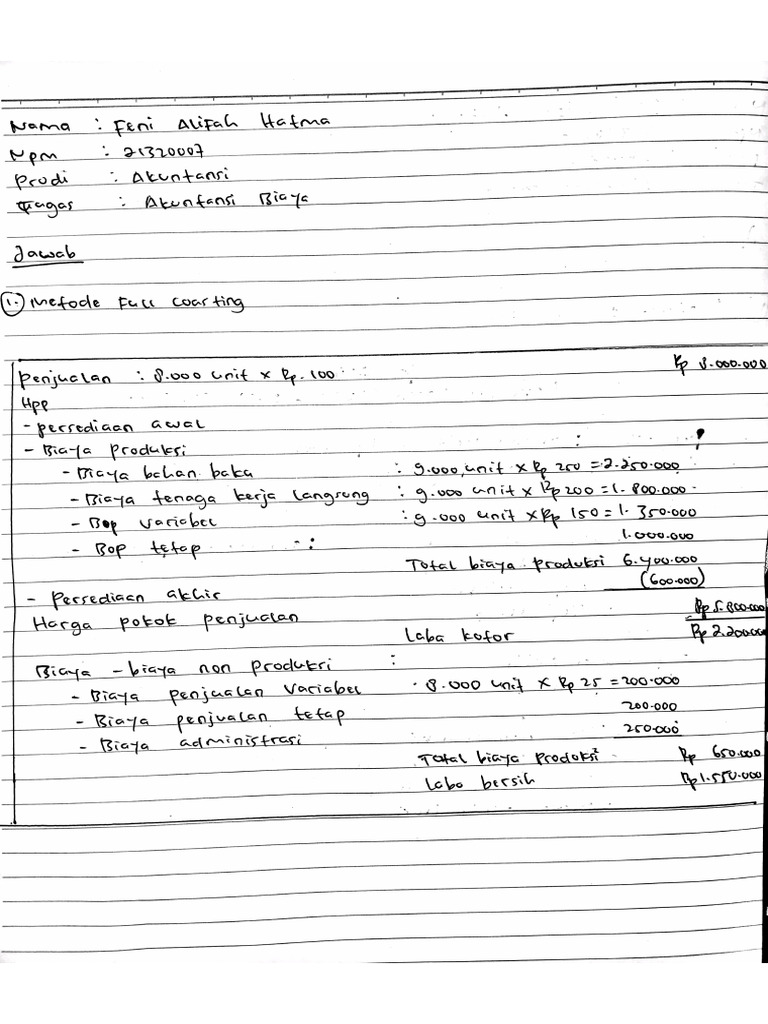 Nama : Feni Alifah Hafma
Npm : 21320007
Prodi : Akuntansi
Tugas : Akuntansi Biaya
Jawab
1. Metode Full Coarting
Penjualan : 8.000 unit x Rp. 100 Rp 8.000.000
Hpp
- persediaan awal
- Biaya produksi :
- Biaya bahan baku : 9.000 unit x Rp 250 = 2.250.000
- Biaya tenaga kerja langsung : 9.000 unit x Rp 200 = 1.800.000
- Bop variabel : 9.000 unit x Rp 150 = 1.350.000
- Bop tetap : 1.000.000
Total biaya produksi 6.400.000
- Persediaan akhir (600.000)
Harga pokok penjualan Rp 5.800.000
Laba kotor Rp 2.200.000
Biaya - biaya non produksi :
- Biaya penjualan variabel 8.000 unit x Rp 25 = 200.000
- Biaya penjualan tetap 200.000
- Biaya administrasi 250.000
Total biaya produksi² Rp 650.000
Laba bersih Rp 1.550.000